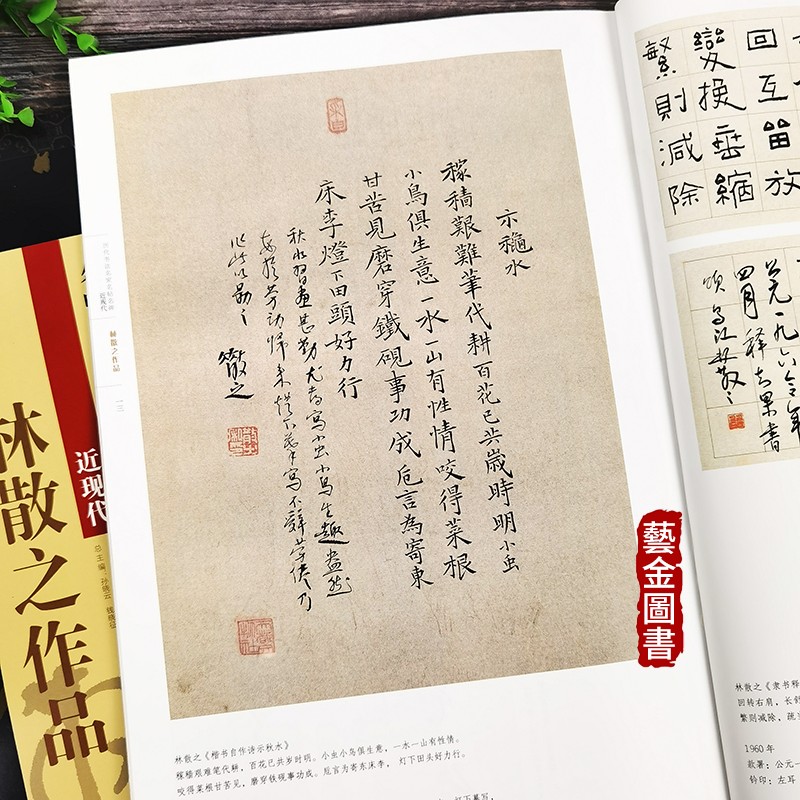 示穐水
稼穡艱難筆代耕百花已共歲時明小虫
小鳥俱生意一水一山有性情咬得菜根
甘苦見磨穿鐵硯事功成卮言為寄東
床李燈下田頭好力行
秋水習画甚勤尤喜寫小虫小鳥生趣盎然
作此以勗之
散之
林散之《楷书自作诗示秋水》
稼穑艰难笔代耕，百花已共岁时明。小虫小鸟俱生意，一水一山有性情。
咬得菜根甘苦见，磨穿铁砚事功成。卮言为寄东床李，灯下田头好力行。
近现代
林散之作品
一三
回互留放
變換垂縮
繁則減除
四月釋智果書
頌烏江林散之
林散之《隶书释
回转右肩，长舒
繁则减除，疏
1960年
款署：公元一
钤印：左耳
近现代
林散之作品
总主编 孙晓云
藝金圖書